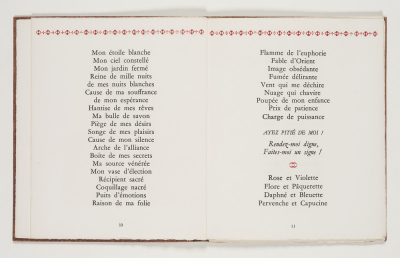 Mon étoile blanche
Mon ciel constellé
Mon jardin fermé
Reine de mille nuits
de mes nuits blanches
Cause de ma souffrance
de mon espérance
Hantise de mes rêves
Ma bulle de savon
Piège de mes désirs
Songe de mes plaisirs
Cause de mon silence
Arche de l'alliance
Boîte de mes secrets
Ma source vénérée
Mon vase d'élection
Récipient sacré
Coquillage nacré
Puits d'émotions
Raison de ma folie
10
Flamme de l'euphorie
Fable d'Orient
Image obsédante
Fumée délirante
Vent qui me déchire
Nuage qui chavire
Poupée de mon enfance
Prix de patience
Charge de puissance
AYEZ PITIÉ DE MOI !
Rendez-moi digne,
Faites-moi un signe !
Rose et Violette
Flore et Pâquerette
Daphné et Bleuette
Pervenche et Capucine
11